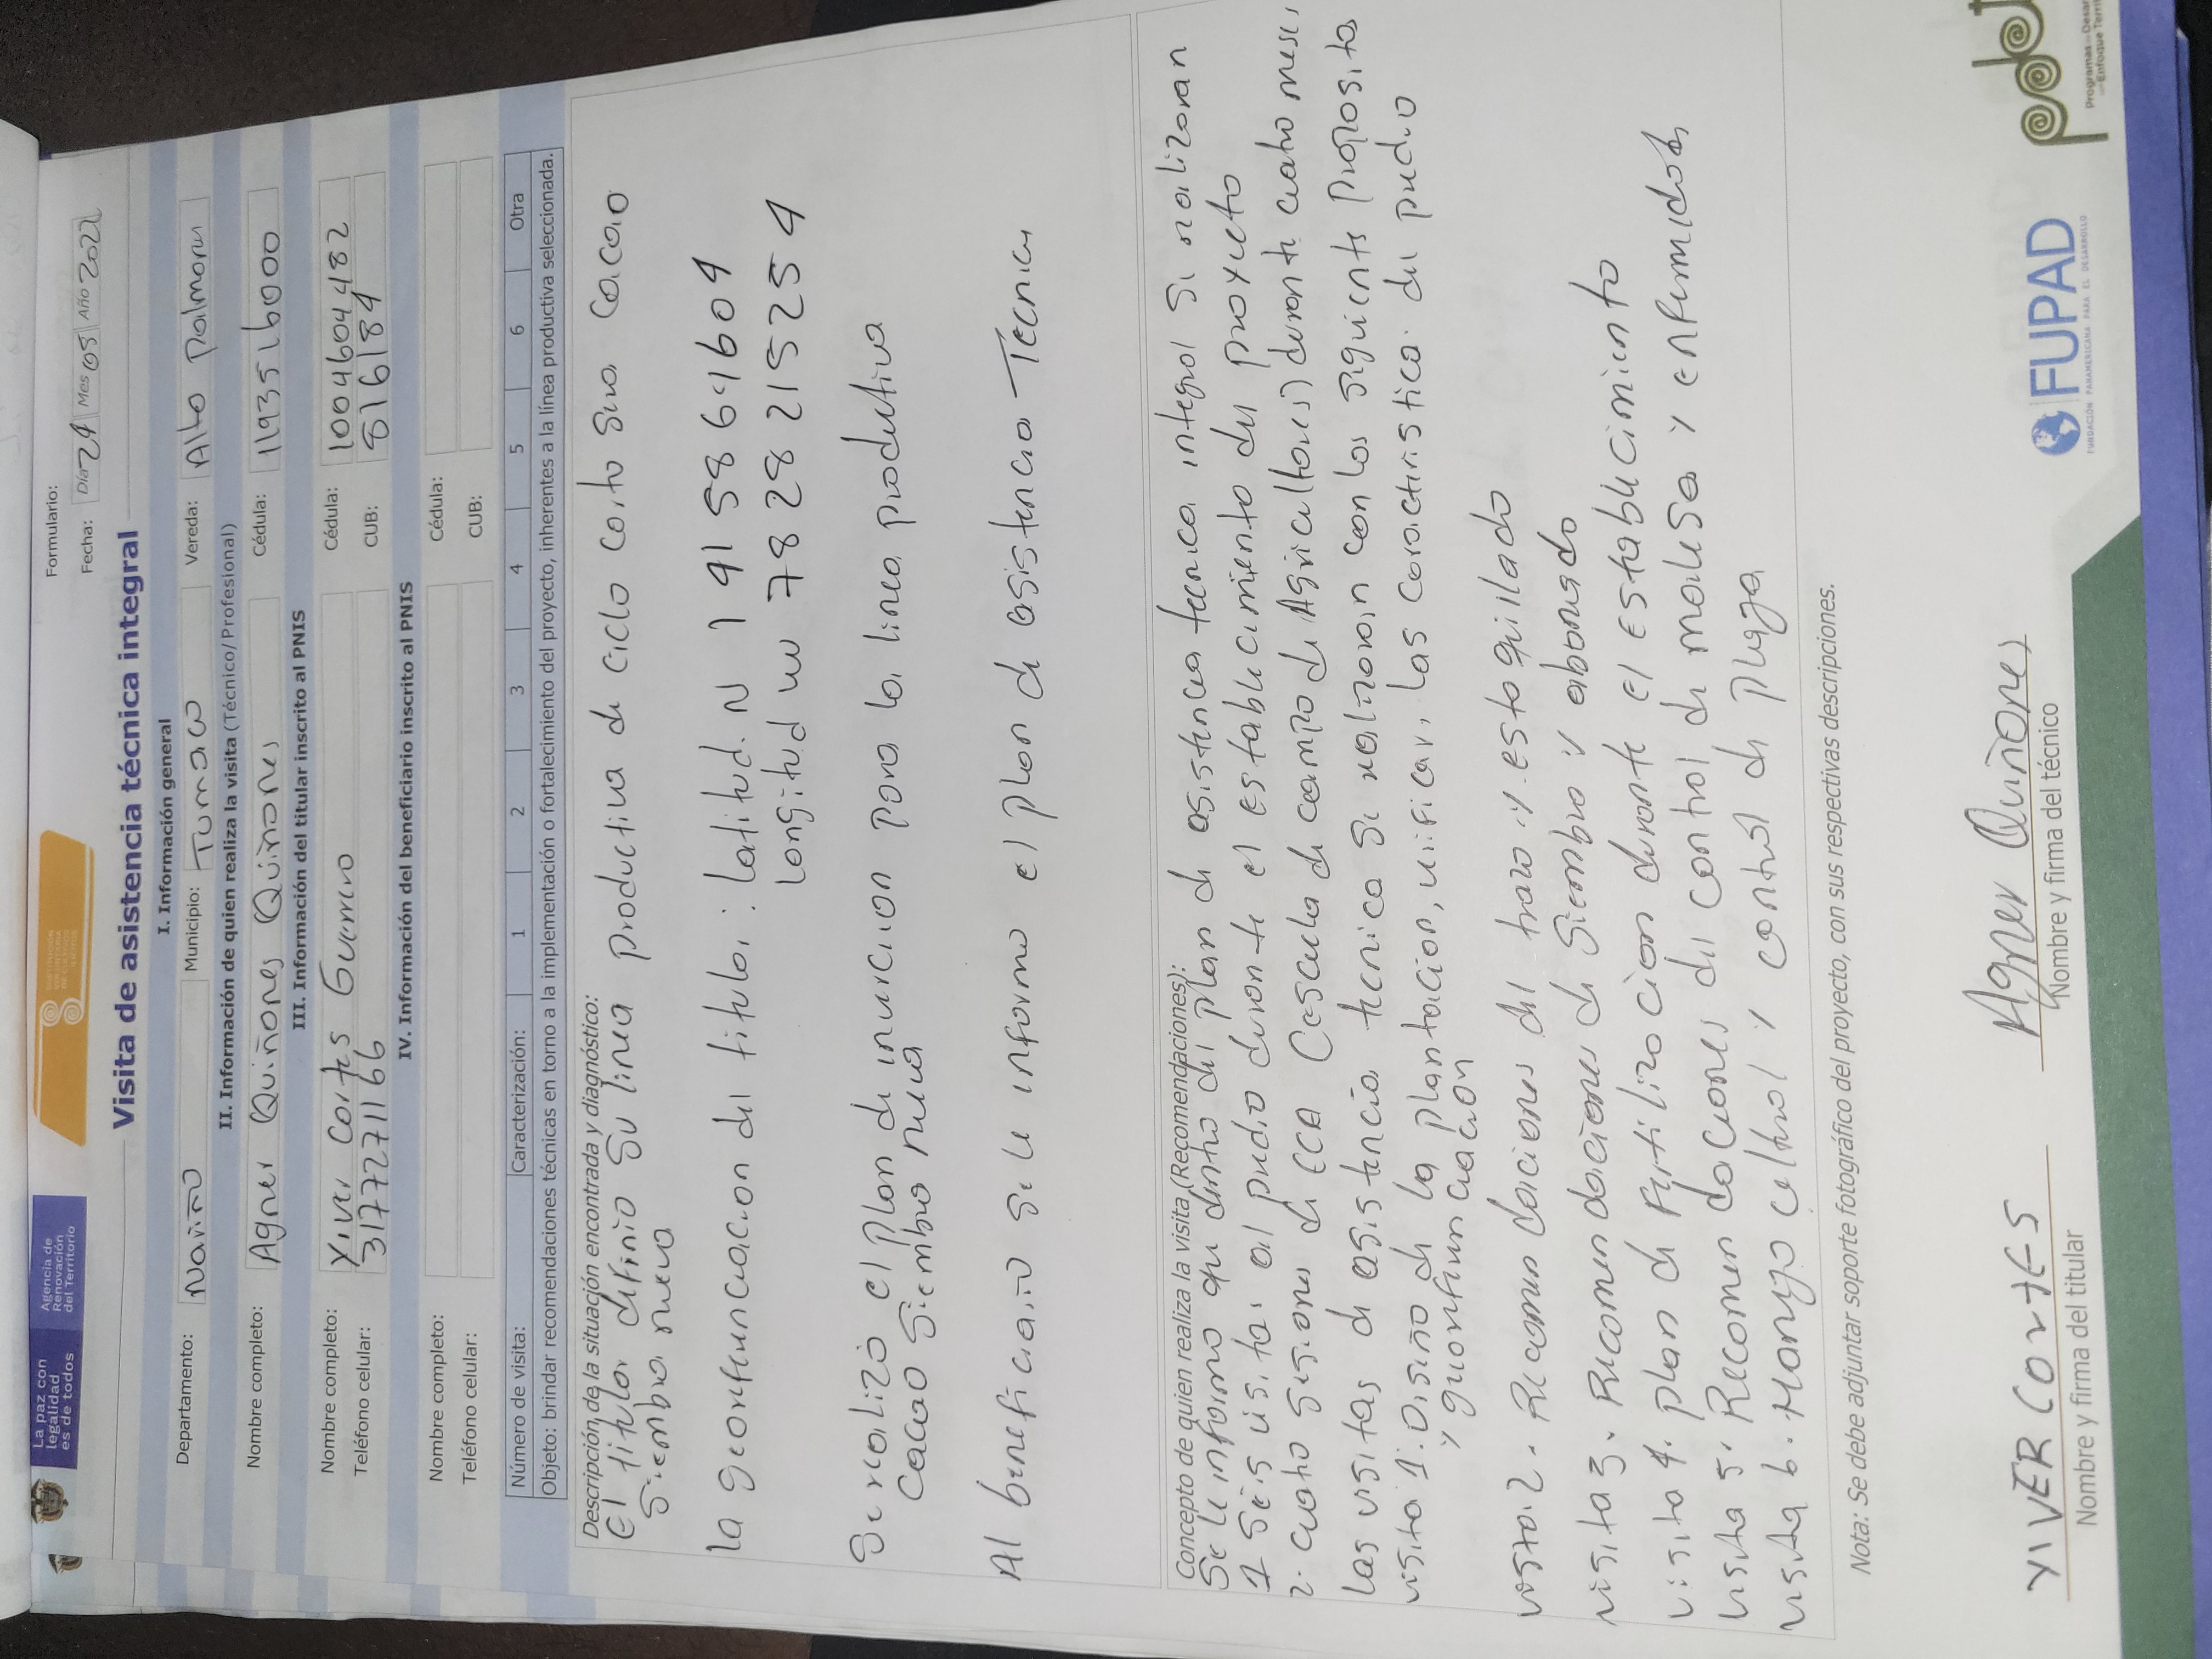 La paz con
legalidad
es de todos
Agencia de
Renovación
del Territorio
SUSTITUCIÓN
VOLUNTARIA
DE CULTIVOS
ILÍCITOS
Formulario:
Fecha: Día 24 Mes 05 Año 2021
Visita de asistencia técnica integral
I. Información general
Departamento: Nariño Municipio: Tumaco Vereda: Alto Palmarea
II. Información de quien realiza la visita (Técnico/Profesional)
Nombre completo: Agner Quiñones Quiñones Cédula: 1193516000
III. Información del titular inscrito al PNIS
Nombre completo: Yiver Cortes Guerrero Cédula: 1004604482
Teléfono celular: 3177271166 CUB: 816184
IV. Información del beneficiario inscrito al PNIS
Nombre completo: Cédula:
Teléfono celular: CUB:
Número de visita: Caracterización: 1 2 3 4 5 6 Otra
Objeto: brindar recomendaciones técnicas en torno a la implementación o fortalecimiento del proyecto, inherentes a la línea productiva seleccionada.
Descripción de la situación encontrada y diagnóstico:
El titular definio su linea productiva de ciclo corto sera cacao
siembra nueva
La georefenciacion del titular: latitud. N 1 41 58 64604
Longitud W 78 28 21 525 4
Se realizó el plan de inversion para la linea productiva
cacao siembra nueva
Al beneficiario se le informo el plan de asistencia Tecnica
Concepto de quien realiza la visita (Recomendaciones):
Se le informo que dentro del plan de asistencia tecnica integral se realizaran
1 seis visitas al predio durante el establecimiento del proyecto
2. cuatro sesiones de ECA (escuela de campo de Agricultores) durante cuatro meses
las visitas de asistencia tecnica se realizaran con los siguiente proposito
visita 1. Diseño de la plantacion, verificar, las caracteristica del predio
y georefenciacion
visita 2. Recomendaciones del trazo y estoquillado
visita 3. Recomendaciones de siembra y abonado
visita 4. plan de fertilizacion durante el establecimiento
visita 5. Recomendaciones del control de malesa y enfermedades
visita 6. Manejo cultural y control de plaga
Nota: Se debe adjuntar soporte fotográfico del proyecto, con sus respectivas descripciones.
YIVER CORTES Agner Quiñones
Nombre y firma del titular Nombre y firma del técnico
FUPAD
FUNDACIÓN PANAMERICANA PARA EL DESARROLLO
pdet